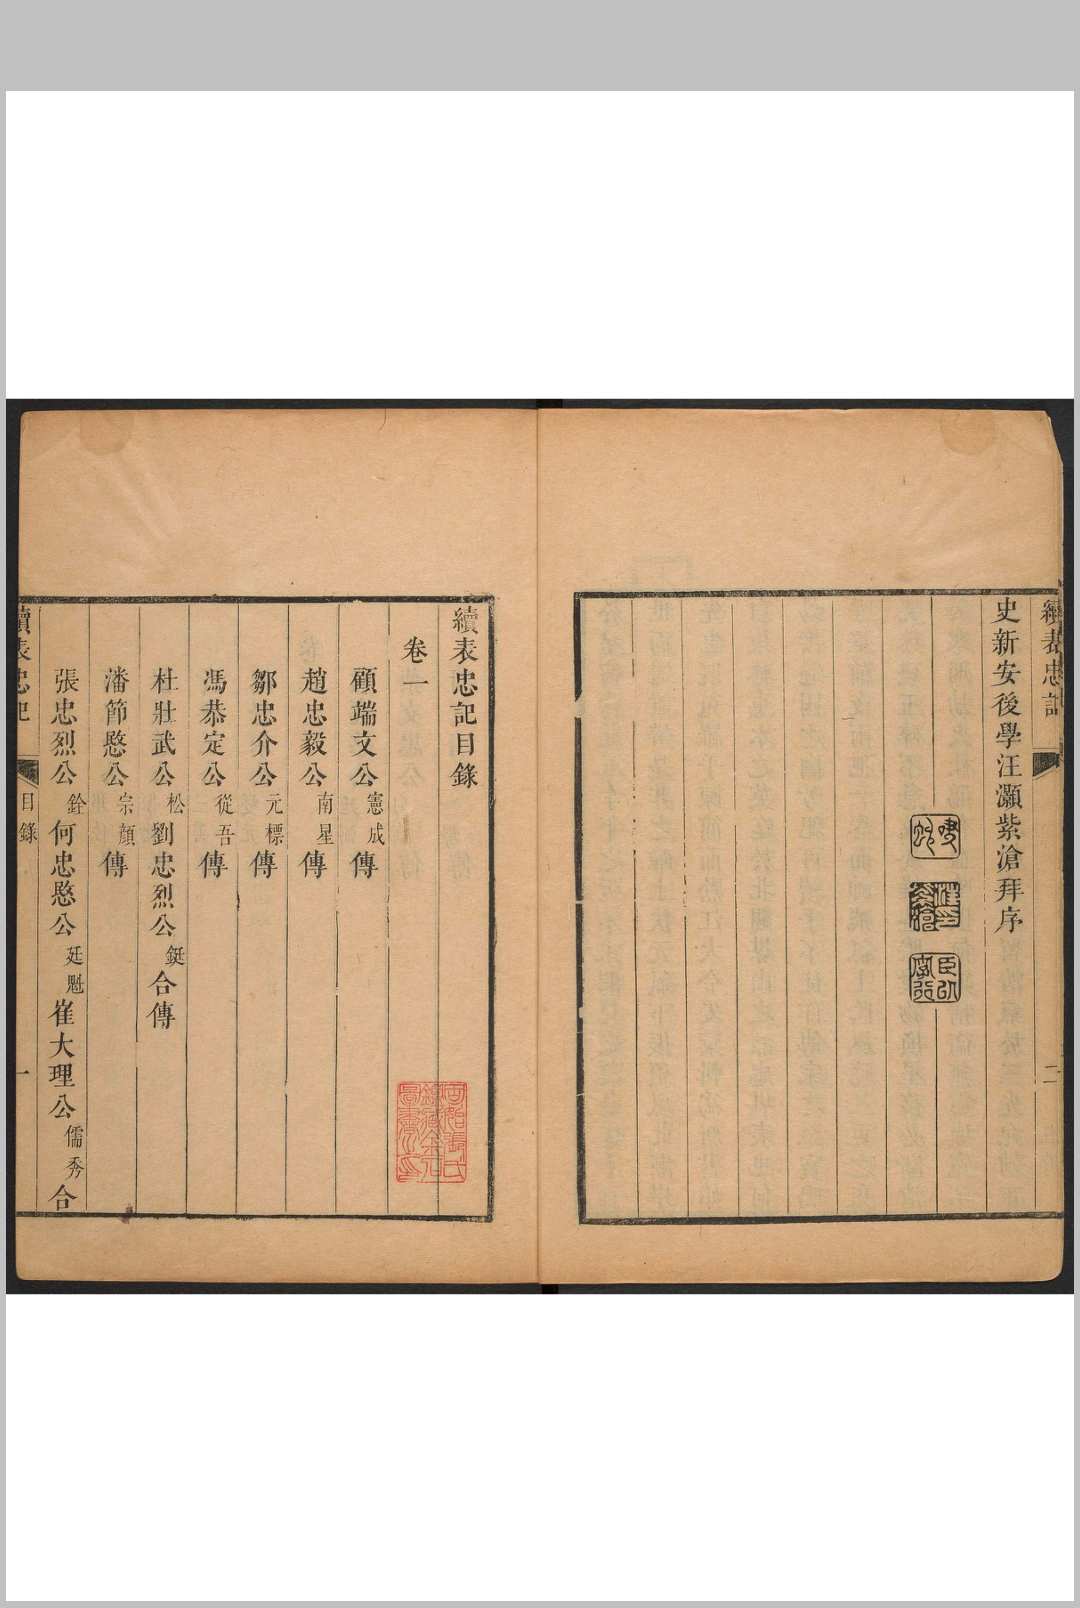 續表忠記
二
史新安後學汪灝紫滄拜序
續表忠記目錄
卷一
顧端文公憲成傳
趙忠毅公南星傳
鄒忠介公元標傳
馮恭定公從吾傳
杜壯武公松劉忠烈公鋌合傳
潘節愍公宗顏傳
張忠烈公銓何忠愍公廷魁崔大理公儒秀合
續表忠記
目錄
一